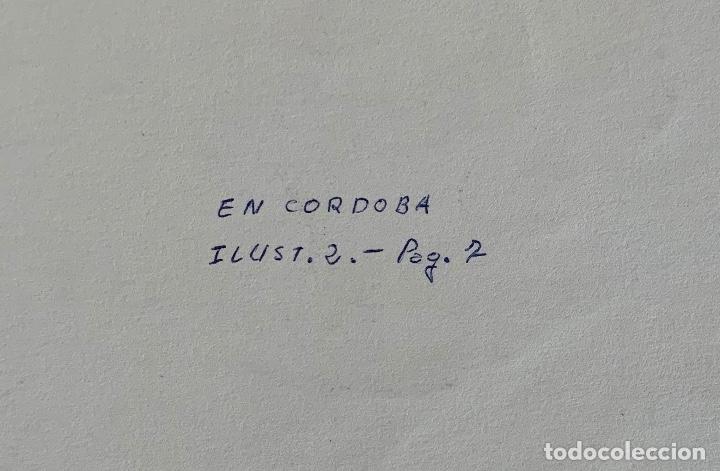 EN CORDOBA
ILUST. 2. - Pag. 7
todocoleccion